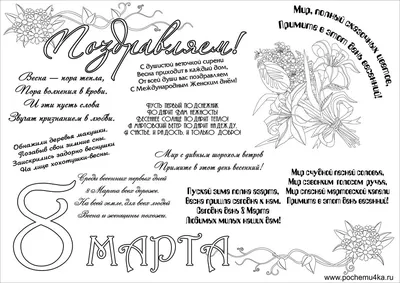 Поздравляем!
Весна – пора тепла,
Пора волнения в крови.
И эти пусть слова
Звучат признанием в любви.
С душистой веточкой сирени
Весна приходит в каждый дом,
От всей души вас поздравляем
С Международным Женским днём!
Мир, полный сказочных цветов,
Примите в этот день весенний!
Пусть первый подснежник
Подарит Вам нежность!
Весеннее солнце подарит тепло!
А мартовский ветер подарит надежду,
И счастье, и радость, и только добро!
Обнажили деревья макушки,
Позабыв свои зимние сны.
Заискрились задорно веснушки
На лице хохотушки-весны.
Мир с дивным шорохом ветров
Примите в этот день весенний!
Среди весенних первых дней
8 Марта всех дороже.
На всей земле, для всех людей
Весна и женщины похожи.
Пускай зима полна азарта,
Весна пришла сегодня к нам.
Сегодня день 8 Марта
Любимых милых наших дам!
Мир звучной песней соловья,
Мир звонким голосом ручья,
Мир спелой мартовской капели
Примите в этот день весенний!
8 МАРТА
www.pochemu4ka.ru